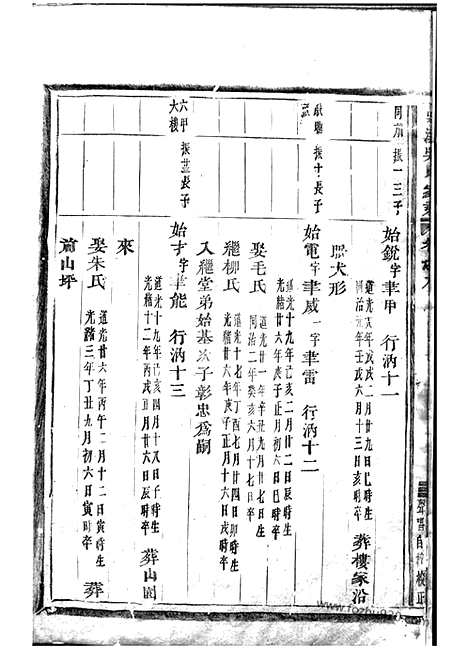 振一三子
始銳字聿甲 行汭十一
二月廿九日巳時生
同治元年壬戌六月十三日亥時卒
葬樓家沿
眠犬形
振十長子
始電字聿威一字聿雷 行汭十二
道光十九年己亥二月廿二日辰時生
光緒廿六年庚子正月初六日巳時卒
娶毛氏
道光廿一年辛丑九月廿九日丑時生
同治二年癸亥六月十七日卒
繼柳氏
道光十七年丁酉七月廿四日卯時生
光緒廿六年庚子正月十六日戌時卒
入繼堂弟始基次子彰忠為嗣
六甲 振益長子
大樓
始才字聿能 行汭十三
道光十九年己亥四月十八日子時生
光緒十二年丙戌正月廿六日辰時卒
葬山園
來
娶朱氏
道光廿六年丙午二月十二日寅時生
光緒三年丁丑九月初六日寅時卒
葬
前山坪
www.fozhu920